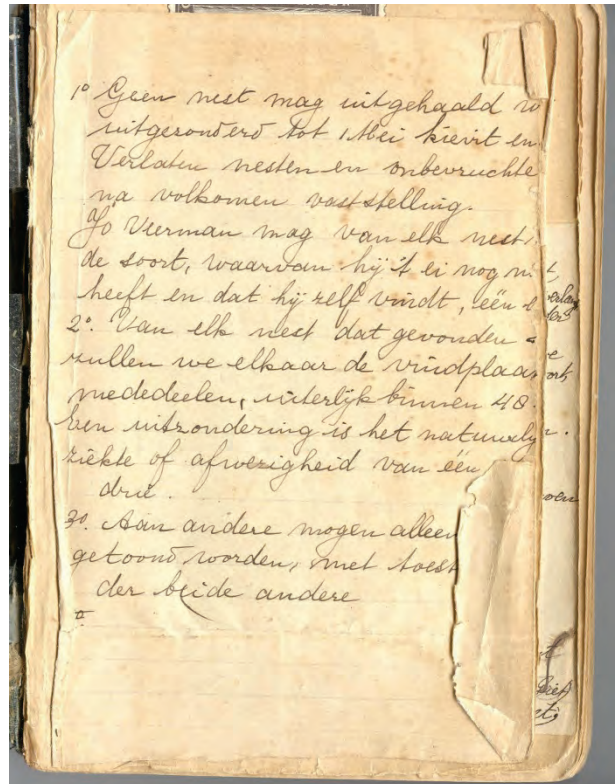 1° Geen nest mag uitgehaald w
uitgezonderd tot 1 Mei kievit en
Verlaten nesten en onbevruchte
na volkomen vaststelling.
Jo Vierman mag van elk nest
de soort, waarvan hij 't ei nog ni
heeft en dat hij zelf vindt, één e
2°. Van elk nest dat gevonden
zullen we elkaar de vindplaa
mededeelen, uiterlijk binnen 48.
Een uitzondering is het natuurlij
ziekte of afwezigheid van één
drie.
3°. Aan andere mogen alleen
getoond worden, met toest
der beide andere